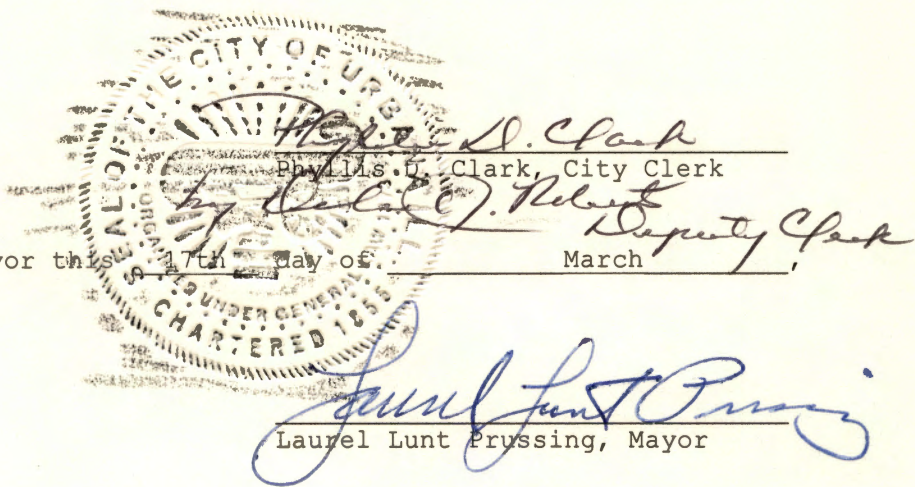 SEAL OF THE CITY OF URBA
ORGANIZED UNDER GENERAL LAW
CHARTERED 1855
Phyllis D. Clark
Phyllis D. Clark, City Clerk
by J. Roberts
Deputy Clerk
yor this 17th day of March,
Laurel Lunt Prussing
Laurel Lunt Prussing, Mayor